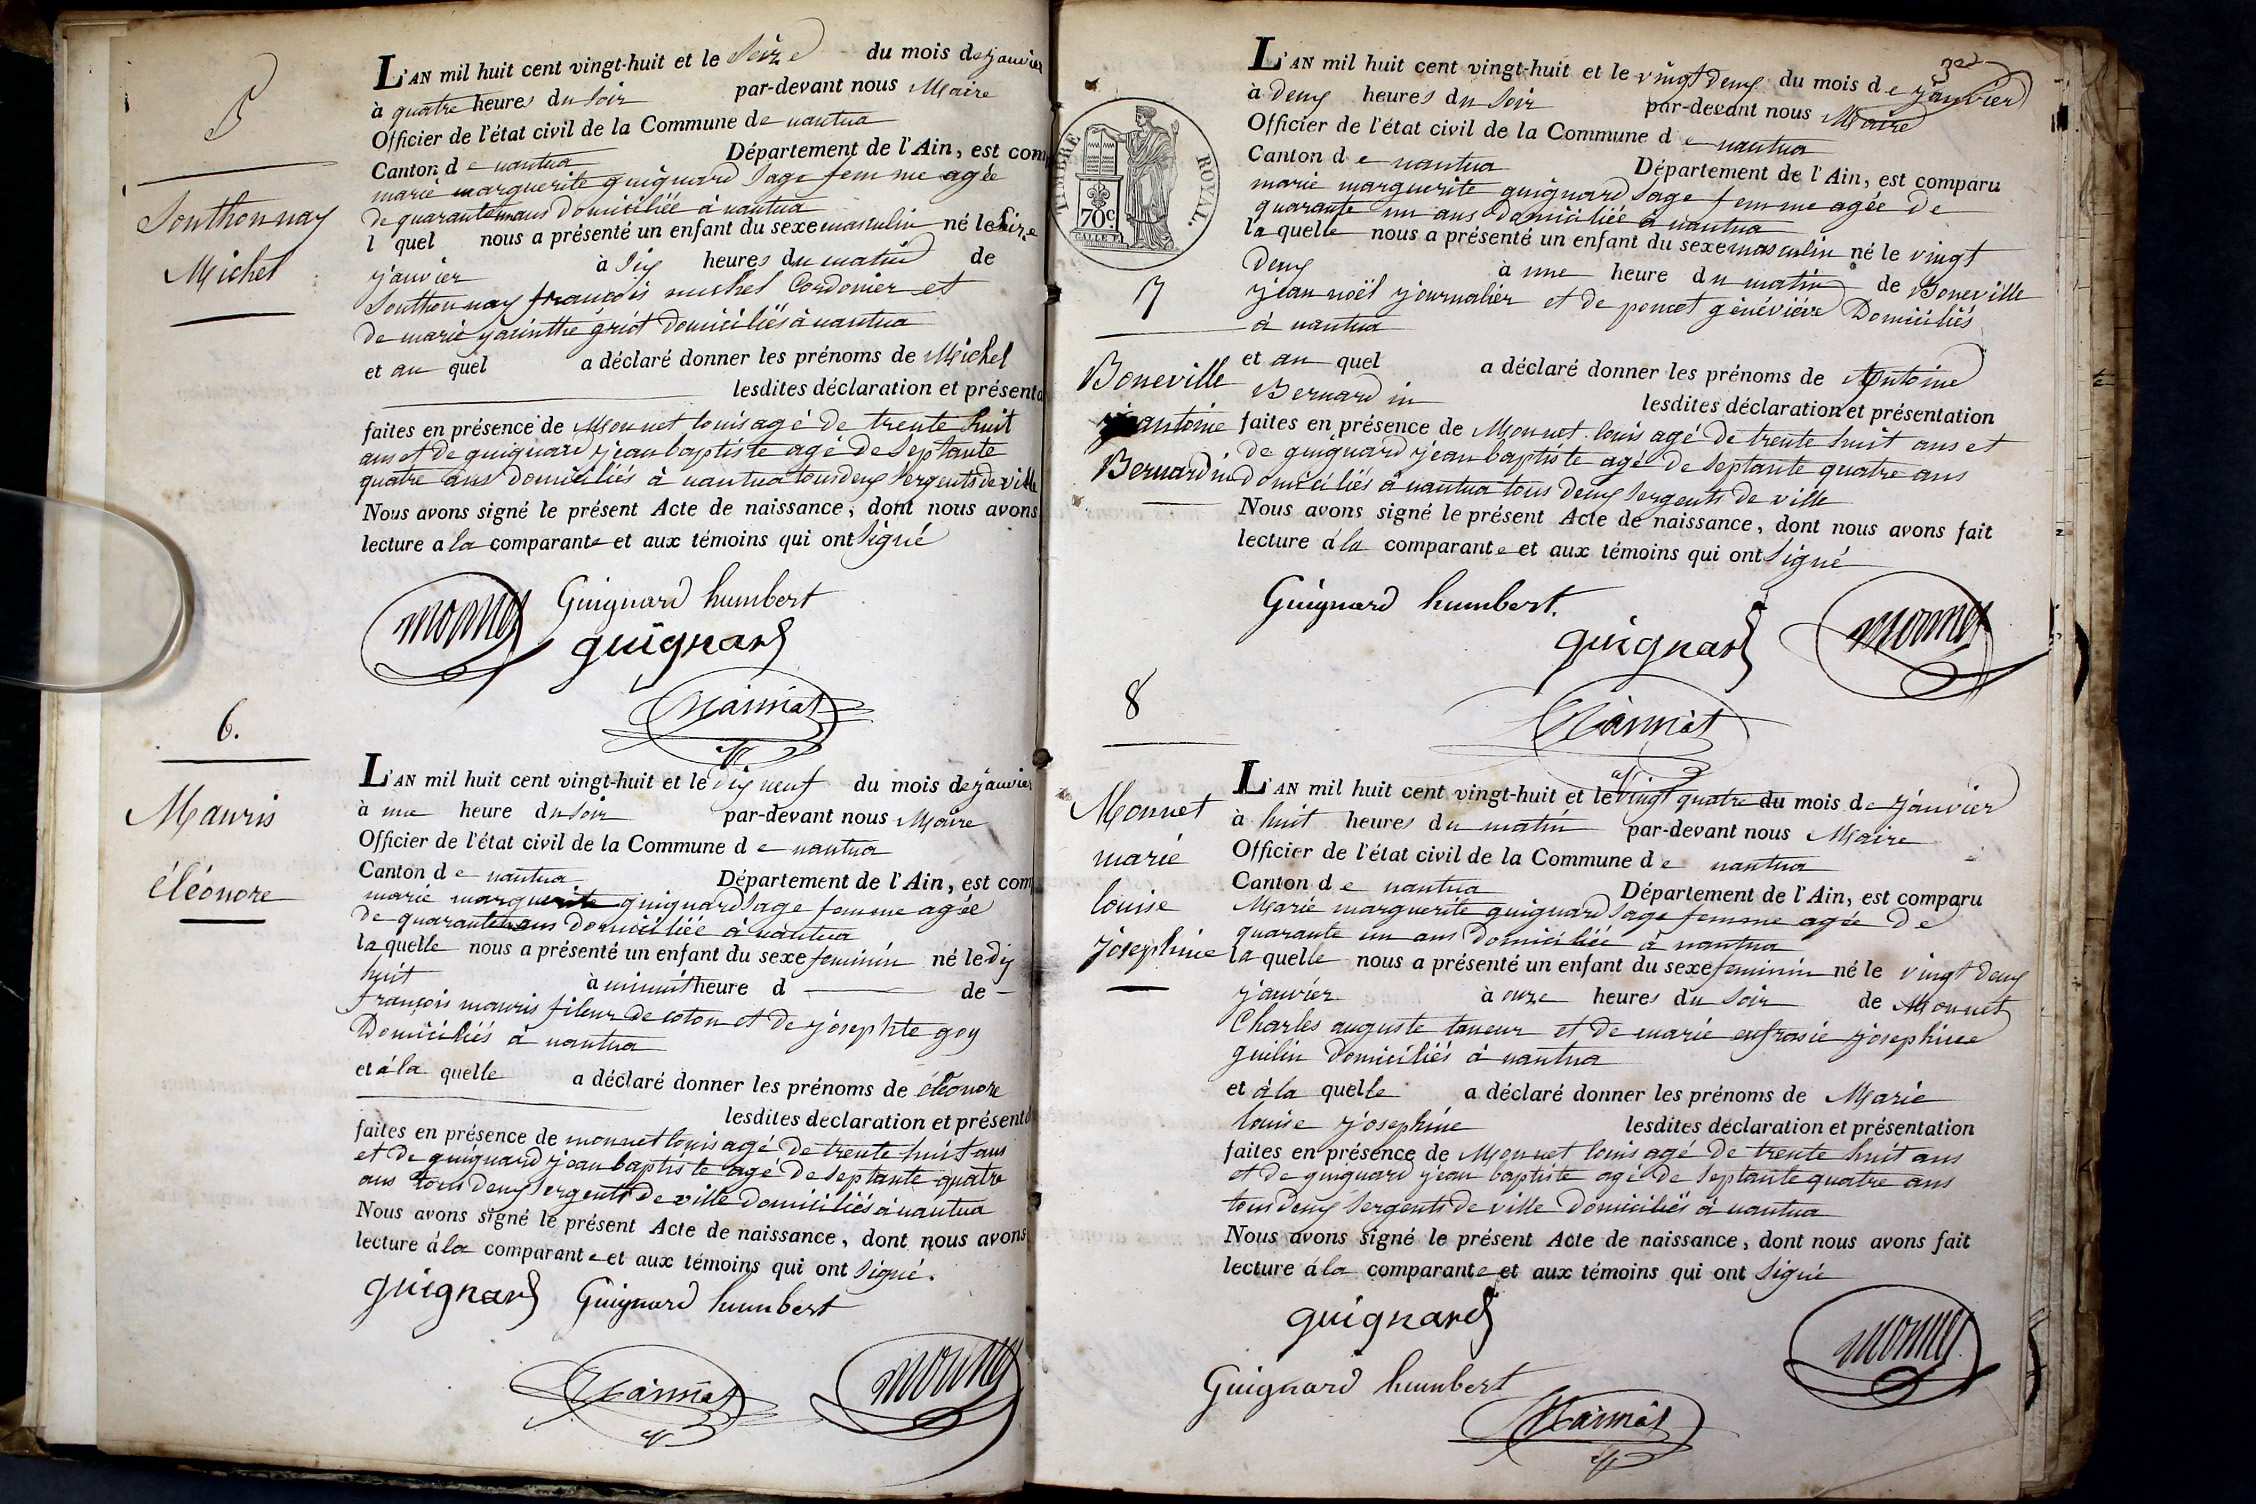 5
Southonnay
Michel
L'AN mil huit cent vingt-huit et le Seize du mois de janvier
à quatre heures du soir par-devant nous Maire
Officier de l'état civil de la Commune de nantua
Canton de nantua Département de l'Ain, est com
marie marguerite guignard sage femme agée
de quarante un ans domiciliée à nantua
l quel nous a présenté un enfant du sexe masculin né le Seize
janvier à six heures du matin de
Southonnay françois michel Cordonier et
de marie jacinthe griot domiciliés à nantua
et au quel a déclaré donner les prénoms de Michel
lesdites déclaration et présenta
faites en présence de Monnet louis agé de trente huit
ans et de guignard jean baptiste agé de septante
quatre ans domiciliés à nantua tous deux sergents de ville
Nous avons signé le présent Acte de naissance, dont nous avons
lecture a la comparante et aux témoins qui ont signé
monnet Guignard humbert
guignard
6.
Mauris
éléonore
L'AN mil huit cent vingt-huit et le dix neuf du mois de janvier
à une heure du soir par-devant nous Maire
Officier de l'état civil de la Commune de nantua
Canton de nantua Département de l'Ain, est com
marie marguerite guignard sage femme agée
de quarante un ans domiciliée à nantua
la quelle nous a présenté un enfant du sexe feminin né le dix
huit à minuit heure d de
françois mauris fileur de coton et de josephte goy
Domiciliés à nantua
et à la quelle a déclaré donner les prénoms de éléonore
lesdites déclaration et présenta
faites en présence de monnet louis agé de trente huit ans
et de guignard jean baptiste agé de septante quatre
ans tous deux sergents de ville domiciliés à nantua
Nous avons signé le présent Acte de naissance, dont nous avons
lecture à la comparante et aux témoins qui ont signé.
guignard Guignard humbert
monnet
TIMBRE ROYAL.
70c.
7
Boneville
antoine
Bernardin
L'AN mil huit cent vingt-huit et le vingt deux du mois de janvier
à deux heures du soir par-devant nous Maire
Officier de l'état civil de la Commune de nantua
Canton de nantua Département de l'Ain, est comparu
marie marguerite guignard sage femme agée de
quarante un ans domiciliée à nantua
la quelle nous a présenté un enfant du sexe masculin né le vingt
deux à une heure du matin de Boneville
jean noël journalier et de poncet géneviéve Domiciliés
à nantua
et au quel a déclaré donner les prénoms de Antoine
Bernardin lesdites déclaration et présentation
faites en présence de Monnet louis agé de trente huit ans et
de guignard jean baptiste agé de septante quatre ans
domiciliés à nantua tous deux sergents de ville
Nous avons signé le présent Acte de naissance, dont nous avons fait
lecture à la comparante et aux témoins qui ont signé
Guignard humbert.
guignard monnet
8
Monnet
marie
louise
josephine
L'AN mil huit cent vingt-huit et le vingt quatre du mois de janvier
à huit heures du matin par-devant nous Maire
Officier de l'état civil de la Commune de nantua
Canton de nantua Département de l'Ain, est comparu
Marie marguerite guignard sage femme agée de
quarante un ans domiciliée à nantua
la quelle nous a présenté un enfant du sexe feminin né le vingt deux
janvier à onze heures du soir de Monnet
Charles auguste taneur et de marie eufrasie josephine
guilin domiciliés à nantua
et à la quelle a déclaré donner les prénoms de Marie
louise josephine lesdites déclaration et présentation
faites en présence de Monnet louis agé de trente huit ans
et de guignard jean baptiste agé de septante quatre ans
tous deux sergents de ville domiciliés à nantua
Nous avons signé le présent Acte de naissance, dont nous avons fait
lecture à la comparante et aux témoins qui ont signé
guignard monnet
Guignard humbert